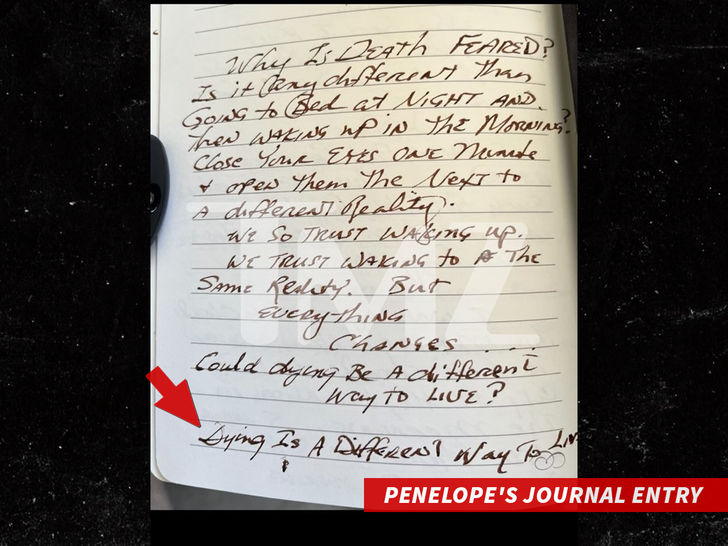 Why Is Death Feared?
Is it any different than
Going to Bed at Night and
then waking up in the Morning?
Close Your Eyes one Minute
+ open them the Next to
A different Reality.
We so trust waking up.
We trust waking to the
Same Reality. But
everything
Changes ....
Could dying Be A different
Way to Live?
Dying Is A Different Way To Liv
TMZ
PENELOPE'S JOURNAL ENTRY